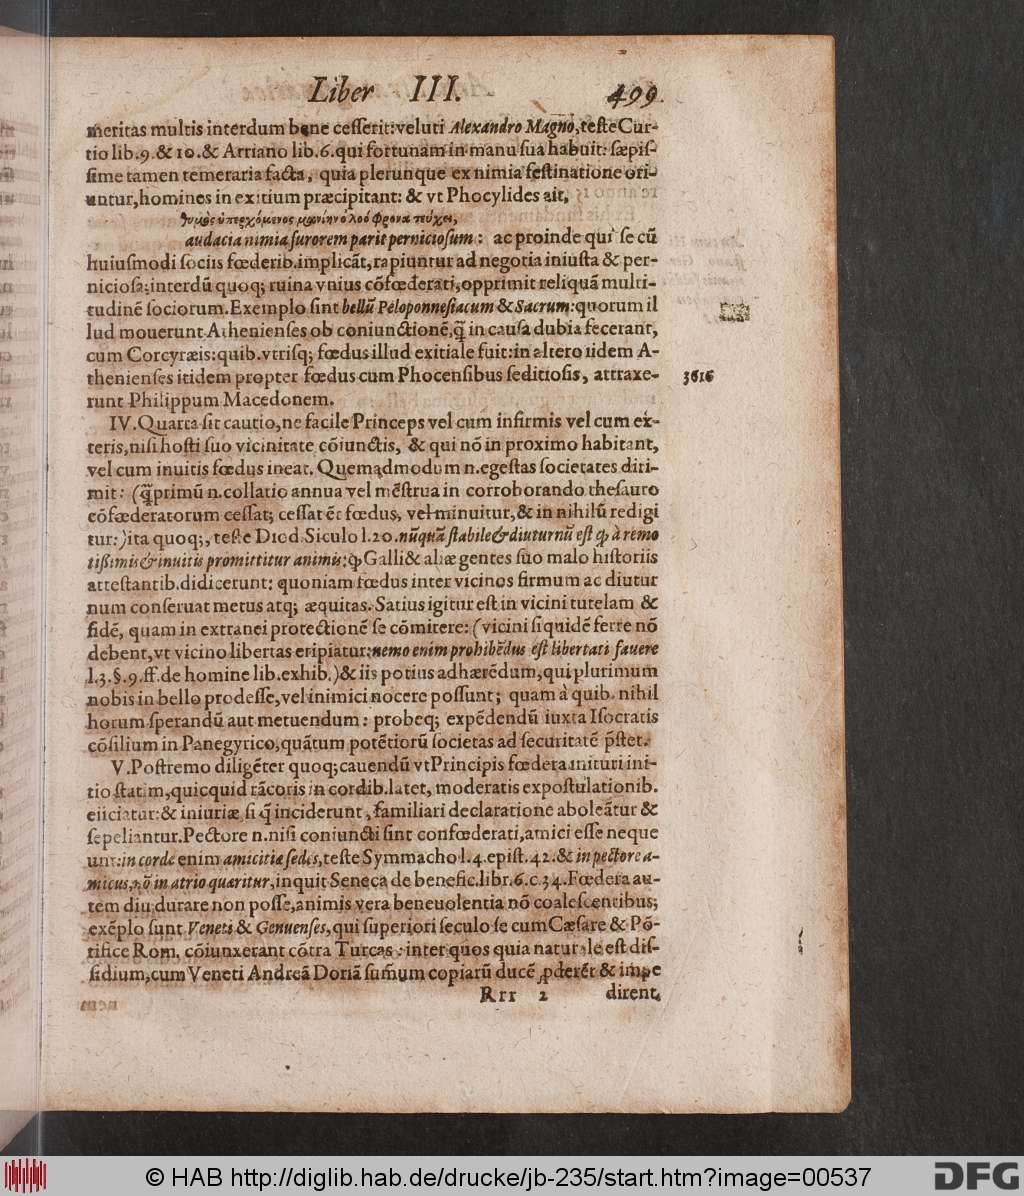 Liber III. 499.
meritas multis interdum bene cesserit: veluti Alexandro Magno, teste Cur-
tio lib. 9. & 10. & Arriano lib. 6. qui fortunam in manu sua habuit: sæpis-
sime tamen temeraria facta, quia plerunque ex nimia festinatione ori-
untur, homines in exitium præcipitant: & vt Phocylides ait,
θυμὸς ὑπερχόμενος μανίην ὀλοόφρονα τεύχει,
audacia nimia furorem parit perniciosum: ac proinde qui se cũ
huiusmodi sociis fœderib. implicãt, rapiuntur ad negotia iniusta & per-
niciosa: interdũ quoq; ruina vnius cõfœderati, opprimit reliquã multi-
tudinẽ sociorum. Exemplo sint bellũ Peloponnesiacum & Sacrum: quorum il
lud mouerunt Athenienses ob coniunctionẽ, q̃ in causa dubia fecerant,
cum Corcyræis: quib. vtrisq; fœdus illud exitiale fuit: in altero iidem A-
thenienses itidem propter fœdus cum Phocensibus seditiosis, attraxe-
3616
runt Philippum Macedonem.
IV. Quarta sit cautio, ne facile Princeps vel cum infirmis vel cum ex-
teris, nisi hosti suo vicinitate cõiunctis, & qui nõ in proximo habitant,
vel cum inuitis fœdus ineat. Quemadmodum n. egestas societates diri-
mit: (q̃ primũ n. collatio annua vel mẽstrua in corroborando thesauro
cõfœderatorum cessat; cessat ẽt fœdus, vel minuitur, & in nihilũ redigi
tur:) ita quoq;, teste Diod. Siculo l. 20. nũquã stabile & diuturnũ est ꝙ à remo
tissimis & inuitis promittitur animis: ꝙ Galli & aliæ gentes suo malo historiis
attestantib. didicerunt: quoniam fœdus inter vicinos firmum ac diutur
num conseruat metus atq; æquitas. Satius igitur est in vicini tutelam &
fidẽ, quam in extranei protectionẽ se cõmitere: (vicini siquidẽ ferre nõ
debent, vt vicino libertas eripiatur: nemo enim prohibẽdus est libertati fauere
l. 3. §. 9. ff. de homine lib. exhib.) & iis potius adhærẽdum, qui plurimum
nobis in bello prodesse, vel inimici nocere possunt; quam à quib. nihil
horum sperandũ aut metuendum: probeq; expẽdendũ iuxta Isocratis
cõsilium in Panegyrico, quãtum potẽtiorũ societas ad securitatẽ p̃stet.
V. Postremo diligẽter quoq; cauendũ vt Principis fœdera inituri ini-
tio statim, quicquid rãcoris in cordib. latet, moderatis expostulationib.
eiiciatur: & iniuriæ si q̃ inciderunt, familiari declaratione aboleãtur &
sepeliantur. Pectore n. nisi coniuncti sint confœderati, amici esse neque
unt: in corde enim amicitiæ sedes, teste Symmacho l. 4. epist. 42. & in pectore a-
micus, nõ in atrio quæritur, inquit Seneca de benefic. libr. 6. c. 34. Fœdera au-
tem diu durare non posse, animis vera beneuolentia nõ coalescentibus;
exẽplo sunt Veneti & Genuenses, qui superiori seculo se cum Cæsare & Põ-
tifice Rom. cõiunxerant cõtra Turcas: inter quos quia naturale est dis-
sidium, cum Veneti Andreã Doriã sum̃um copiarũ ducẽ ꝓderẽt & impe
Rrr 2 dirent,
© HAB http://diglib.hab.de/drucke/jb-235/start.htm?image=00537
DFG